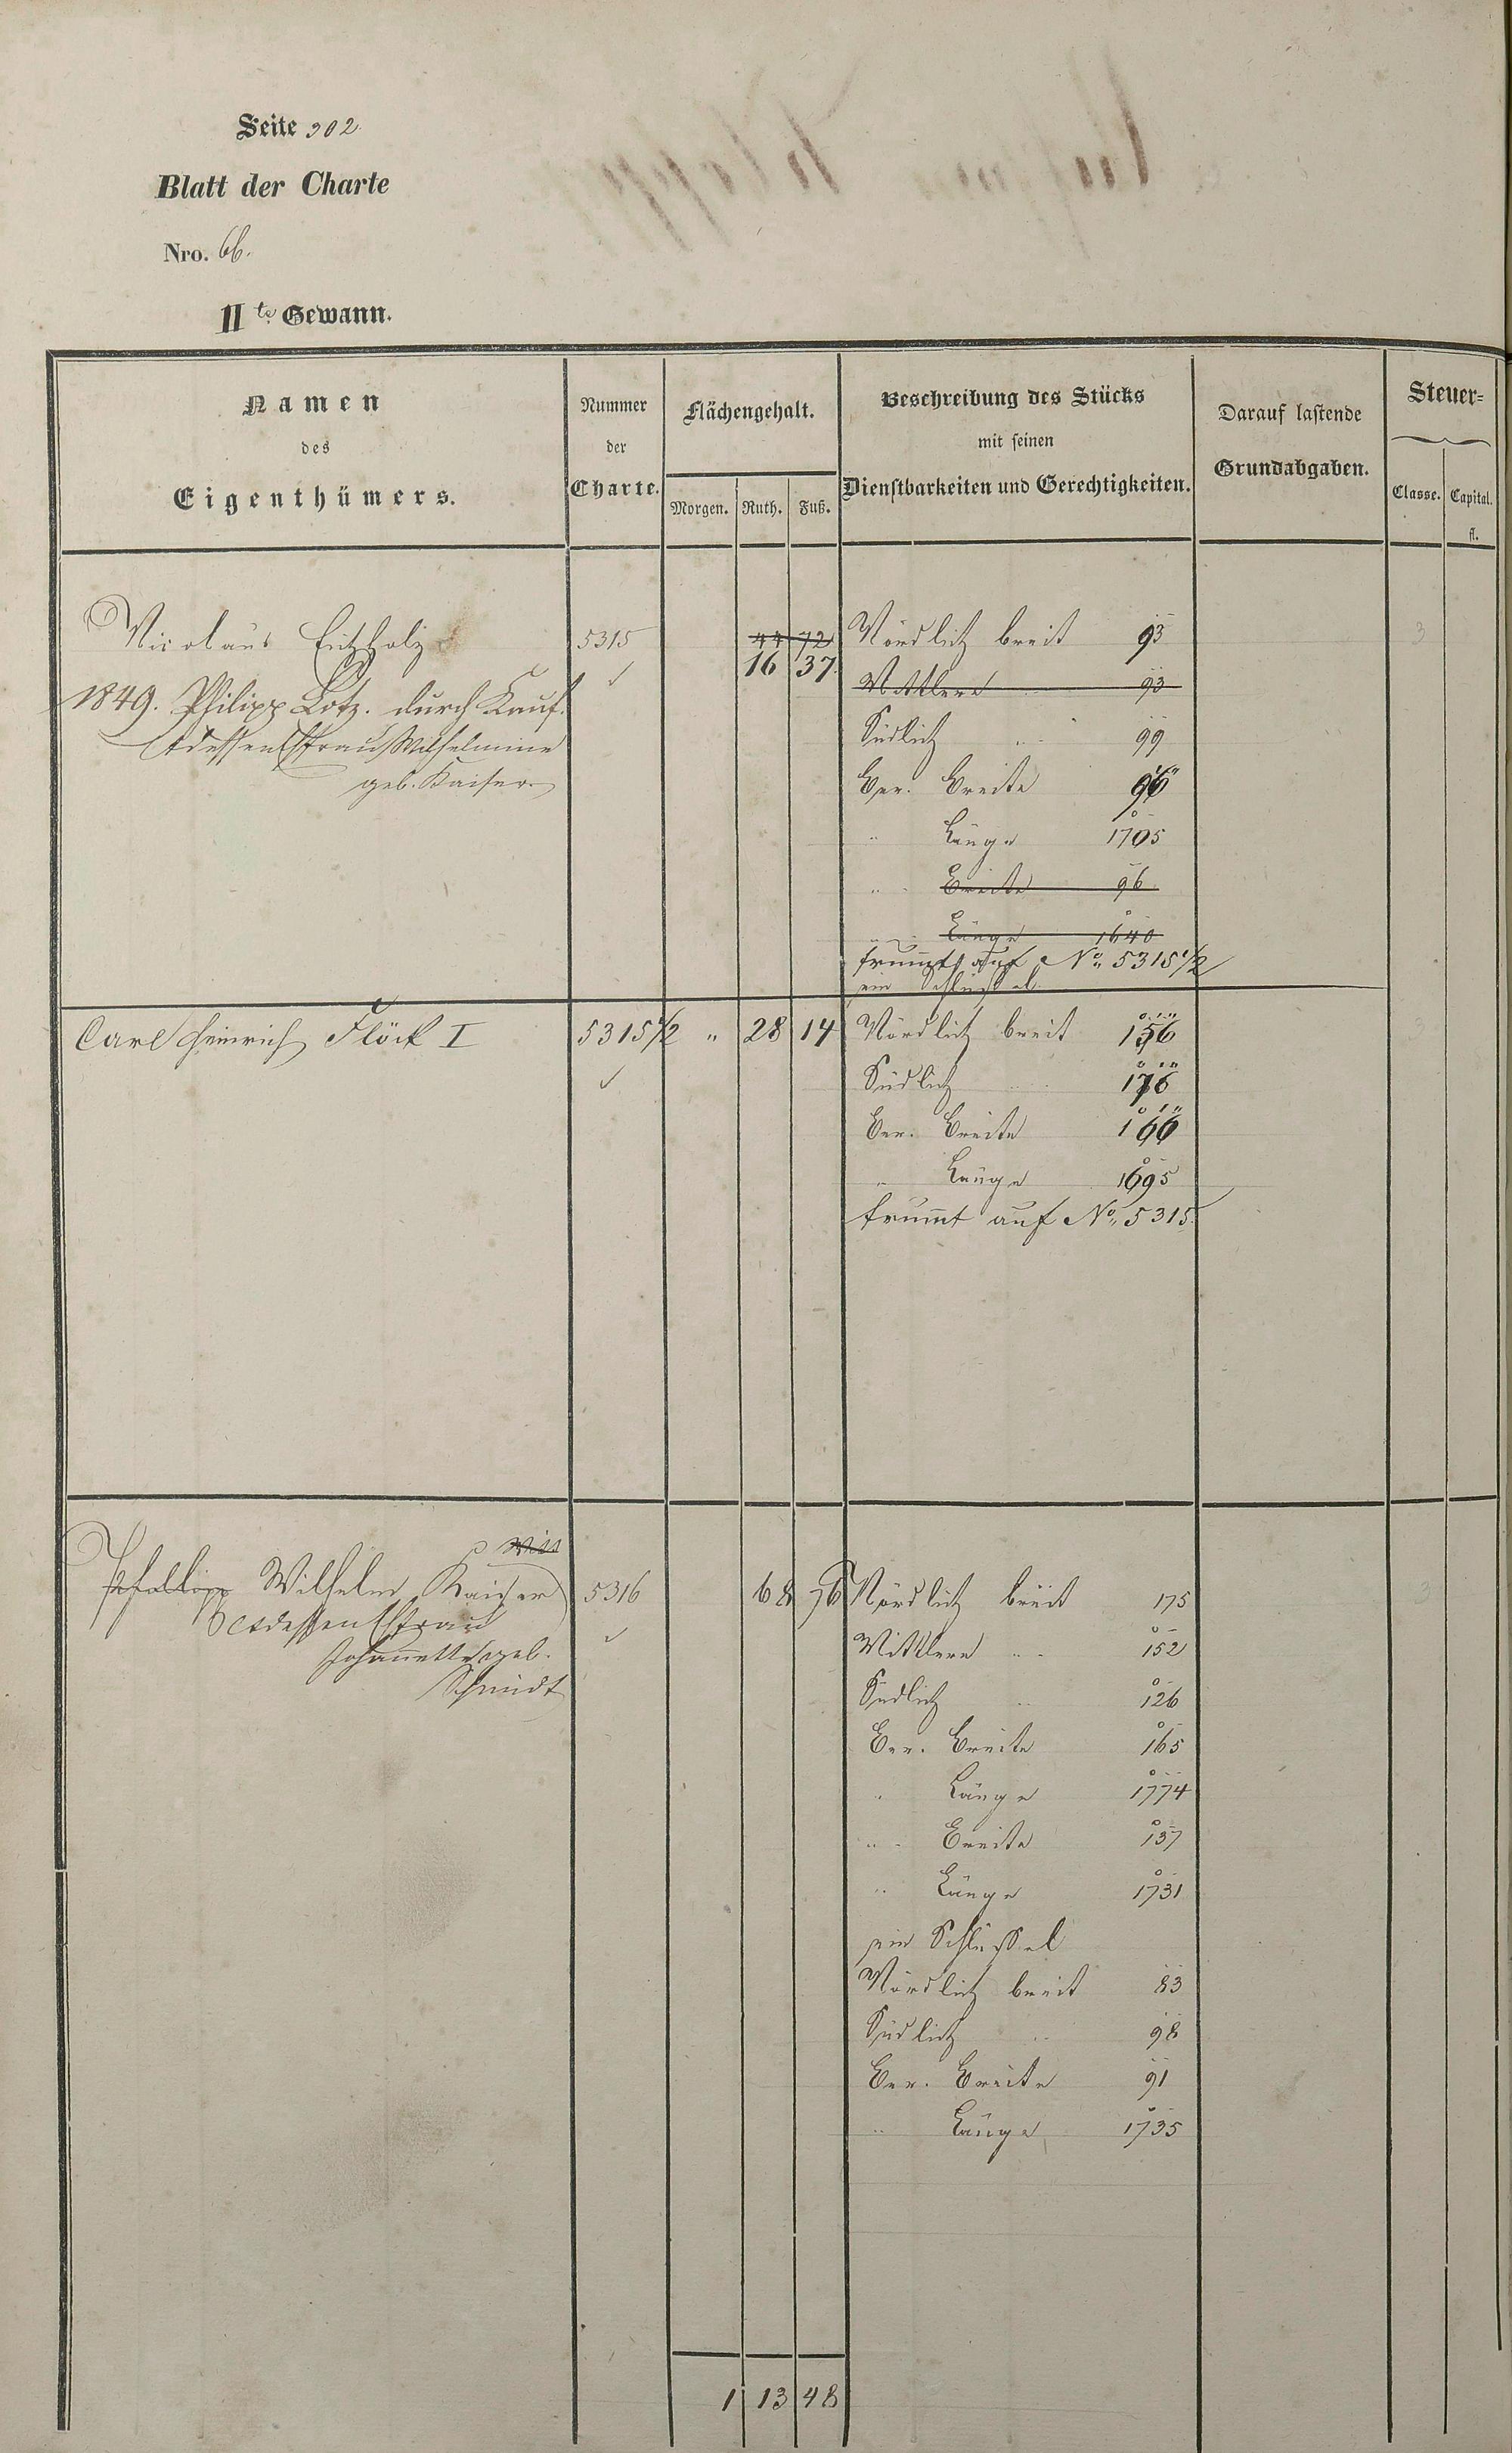 Seite 302
Blatt der Charte
Nro. 66.
II te Gewann.
Namen des Eigenthümers.
Nummer der Charte.
Flächengehalt.
Morgen. Ruth. Fuß.
Beschreibung des Stücks mit seinen Dienstbarkeiten und Gerechtigkeiten.
Darauf lastende Grundabgaben.
Steuer=
Classe. Capital. fl.
Nicolaus 5315 44 72 Nördlich breit 93
16 37 Mittlere 93
1849. Philipp Lotz. durch Kauf.
et dessen Efrau Wilhelmine
geb. Kaiser
Südlich " 99
Ber. Breite 96
" Länge 1705
" Breite 96
" Länge 1640
krummt auf No. 5315 1/2
ein Schlüssel
Carl Heinrich Flöck I 5315 1/2 " 28 14 Nördlich breit 156
Südlich 176
Ber. Breite 166
" Länge 1695
krummt auf No. 5315.
Wilhelm Kaiser 5316 68 76 Nördlich breit 175
et dessen Efrau
Johannette geb.
Schmidt
Mittlere " 152
Südlich " 126
Ber. Breite 165
" Länge 1774
" Breite 137
" Länge 1731
ein Schlüssel
Nördlich breit 83
Südlich " 98
Ber. Breite 91
" Länge 1735
1 13 48